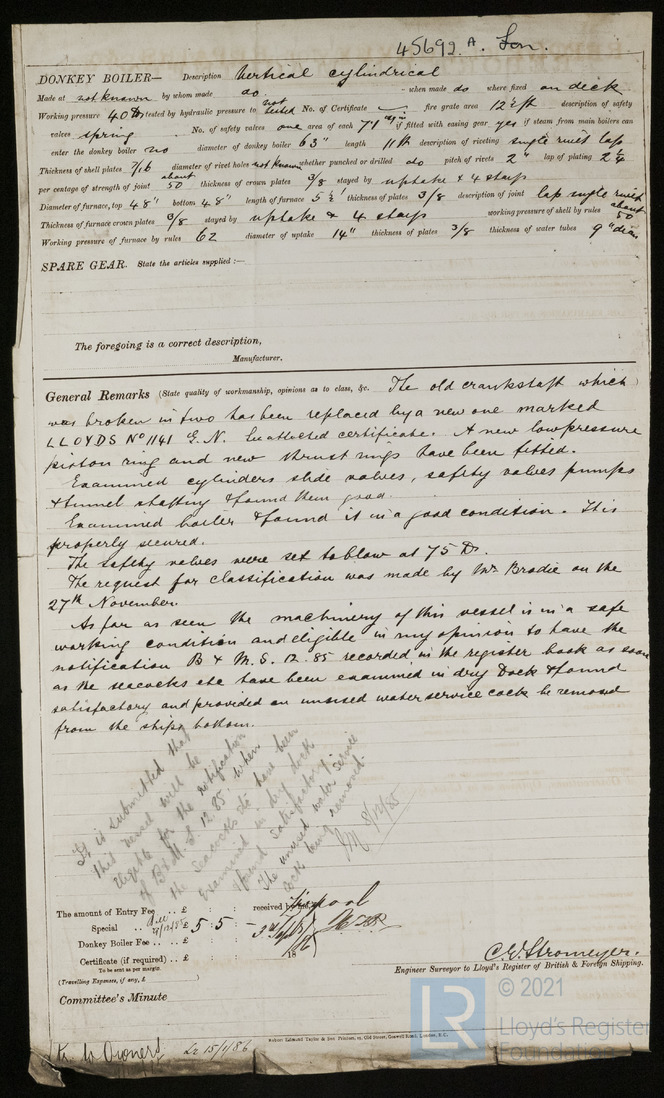 45692 A. Lon.
DONKEY BOILER— Description Vertical cylindrical
Made at not known by whom made do - when made do where fixed on deck
Working pressure 40 lbs tested by hydraulic pressure to not tested No. of Certificate — fire grate area 12 sq ft description of safety
valves spring No. of safety valves one area of each 7.1 sq in if fitted with easing gear yes if steam from main boilers can
enter the donkey boiler no diameter of donkey boiler 63" length 11 ft description of riveting single rivet lap
Thickness of shell plates 7/16 diameter of rivet holes not known whether punched or drilled do pitch of rivets 2" lap of plating 2½
per centage of strength of joint about 50 thickness of crown plates 3/8 stayed by uptake & 4 stays
Diameter of furnace, top 48" bottom 48" length of furnace 5½' thickness of plates 3/8 description of joint lap single rivet
Thickness of furnace crown plates 3/8 stayed by uptake & 4 stays working pressure of shell by rules about 50
Working pressure of furnace by rules 62 diameter of uptake 14" thickness of plates 3/8 thickness of water tubes 9" diam
SPARE GEAR. State the articles supplied:—
The foregoing is a correct description,
Manufacturer.
General Remarks (State quality of workmanship, opinions as to class, &c. The old crankshaft which
was broken in two has been replaced by a new one marked
LLOYDS No 1141 G.N. See attached certificate. A new low pressure
piston ring and new thrust rings have been fitted.
Examined cylinders slide valves, safety valves pumps
& tunnel shafting & found them good.
Examined boiler & found it in a good condition. It is
properly secured.
The safety valves were set to blow at 75 lbs.
The request for classification was made by Mr Brodie on the
27th November.
As far as seen the machinery of this vessel is in a safe
working condition and eligible in my opinion to have the
notification B & M. S. 12.85 recorded in the register book as soon
as the seacocks etc have been examined in dry Dock & found
satisfactory and provided an unused water service cock be removed
from the ships bottom.
It is submitted that
this vessel will be
eligible for the notification
of B & M.S. 12.85 when
the Seacocks etc have been
examined in dry dock
& found satisfactory
The unused water service
cock being removed.
8/12/85
The amount of Entry Fee .. £ : : received by me,
Special .. £ 5 : 5 :
Donkey Boiler Fee .. £ : :
Certificate (if required) .. £ : : 18
To be sent as per margin.
(Travelling Expenses, if any, £ )
C. E. Stromeyer.
Engineer Surveyor to Lloyd's Register of British & Foreign Shipping.
Committee's Minute
Robert Edmund Taylor & Son Printers, 19, Old Street, Goswell Road, London, E.C.
to Owners
Lr 15/1/86
LR
© 2021
Lloyd's Register
Foundation